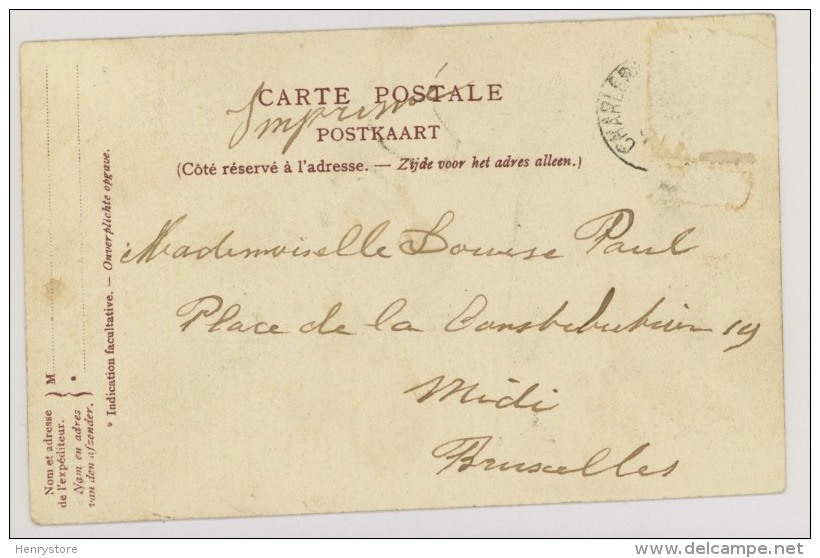 CARTE POSTALE
Imprimé
POSTKAART
(Côté réservé à l'adresse. — Zijde voor het adres alleen.)
CHARLER
Mademoiselle Louise Paul
Place de la Constitution 19
Midi
Bruxelles
* Indication facultative. — Onverplichte opgave.
M
*
Nom et adresse
de l'expéditeur.
Nam en adres
van den afzender.
Henrystore
www.delcampe.net